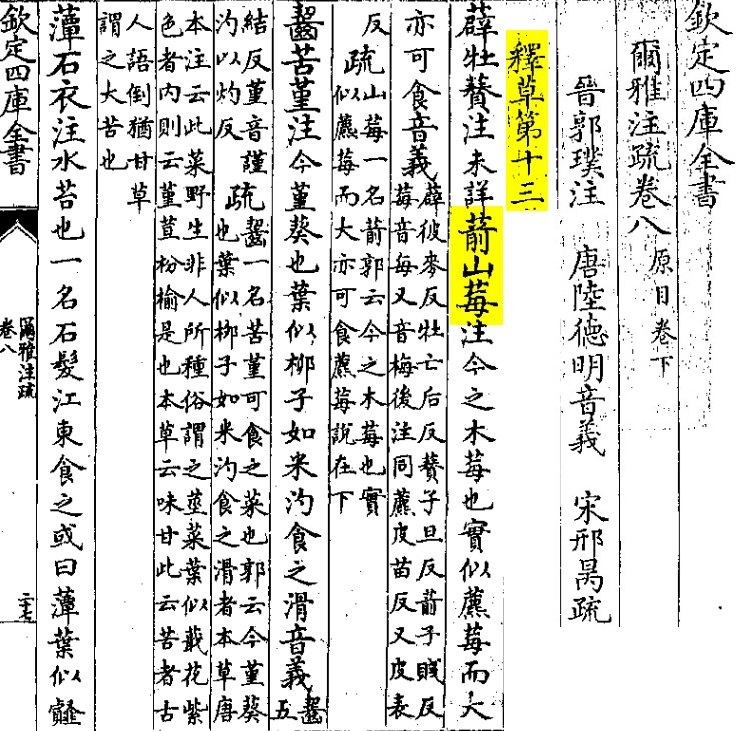 欽定四庫全書
爾雅注疏卷八 原目卷下
晉郭璞注 唐陸德明音義 宋邢昺疏
釋草第十三
薜牡䕺注未詳葥山莓注今之木莓也實似藨莓而大
亦可食音義薜彼麥反牡亡后反䕺子旦反葥子賤反
莓音每又音梅後注同藨皮苗反又皮表
反疏山莓一名葥郭云今之木莓也實
似藨莓而大亦可食藨莓說在下
齧苦堇注今堇葵也葉似柳子如米汋食之滑音義齧五
結反堇音謹
汋以灼反疏齧一名苦堇可食之菜也郭云今堇葵
也葉似柳子如米汋食之滑者本草唐
本注云此菜野生非人所種俗謂之堇菜葉似蕺花紫
色者內則云堇荁枌榆是也本草云味甘此云苦者古
人語倒猶甘草
謂之大苦也
藫石衣注水苔也一名石髮江東食之或曰藫葉似䪥
欽定四庫全書
爾雅注疏
卷八
二十七